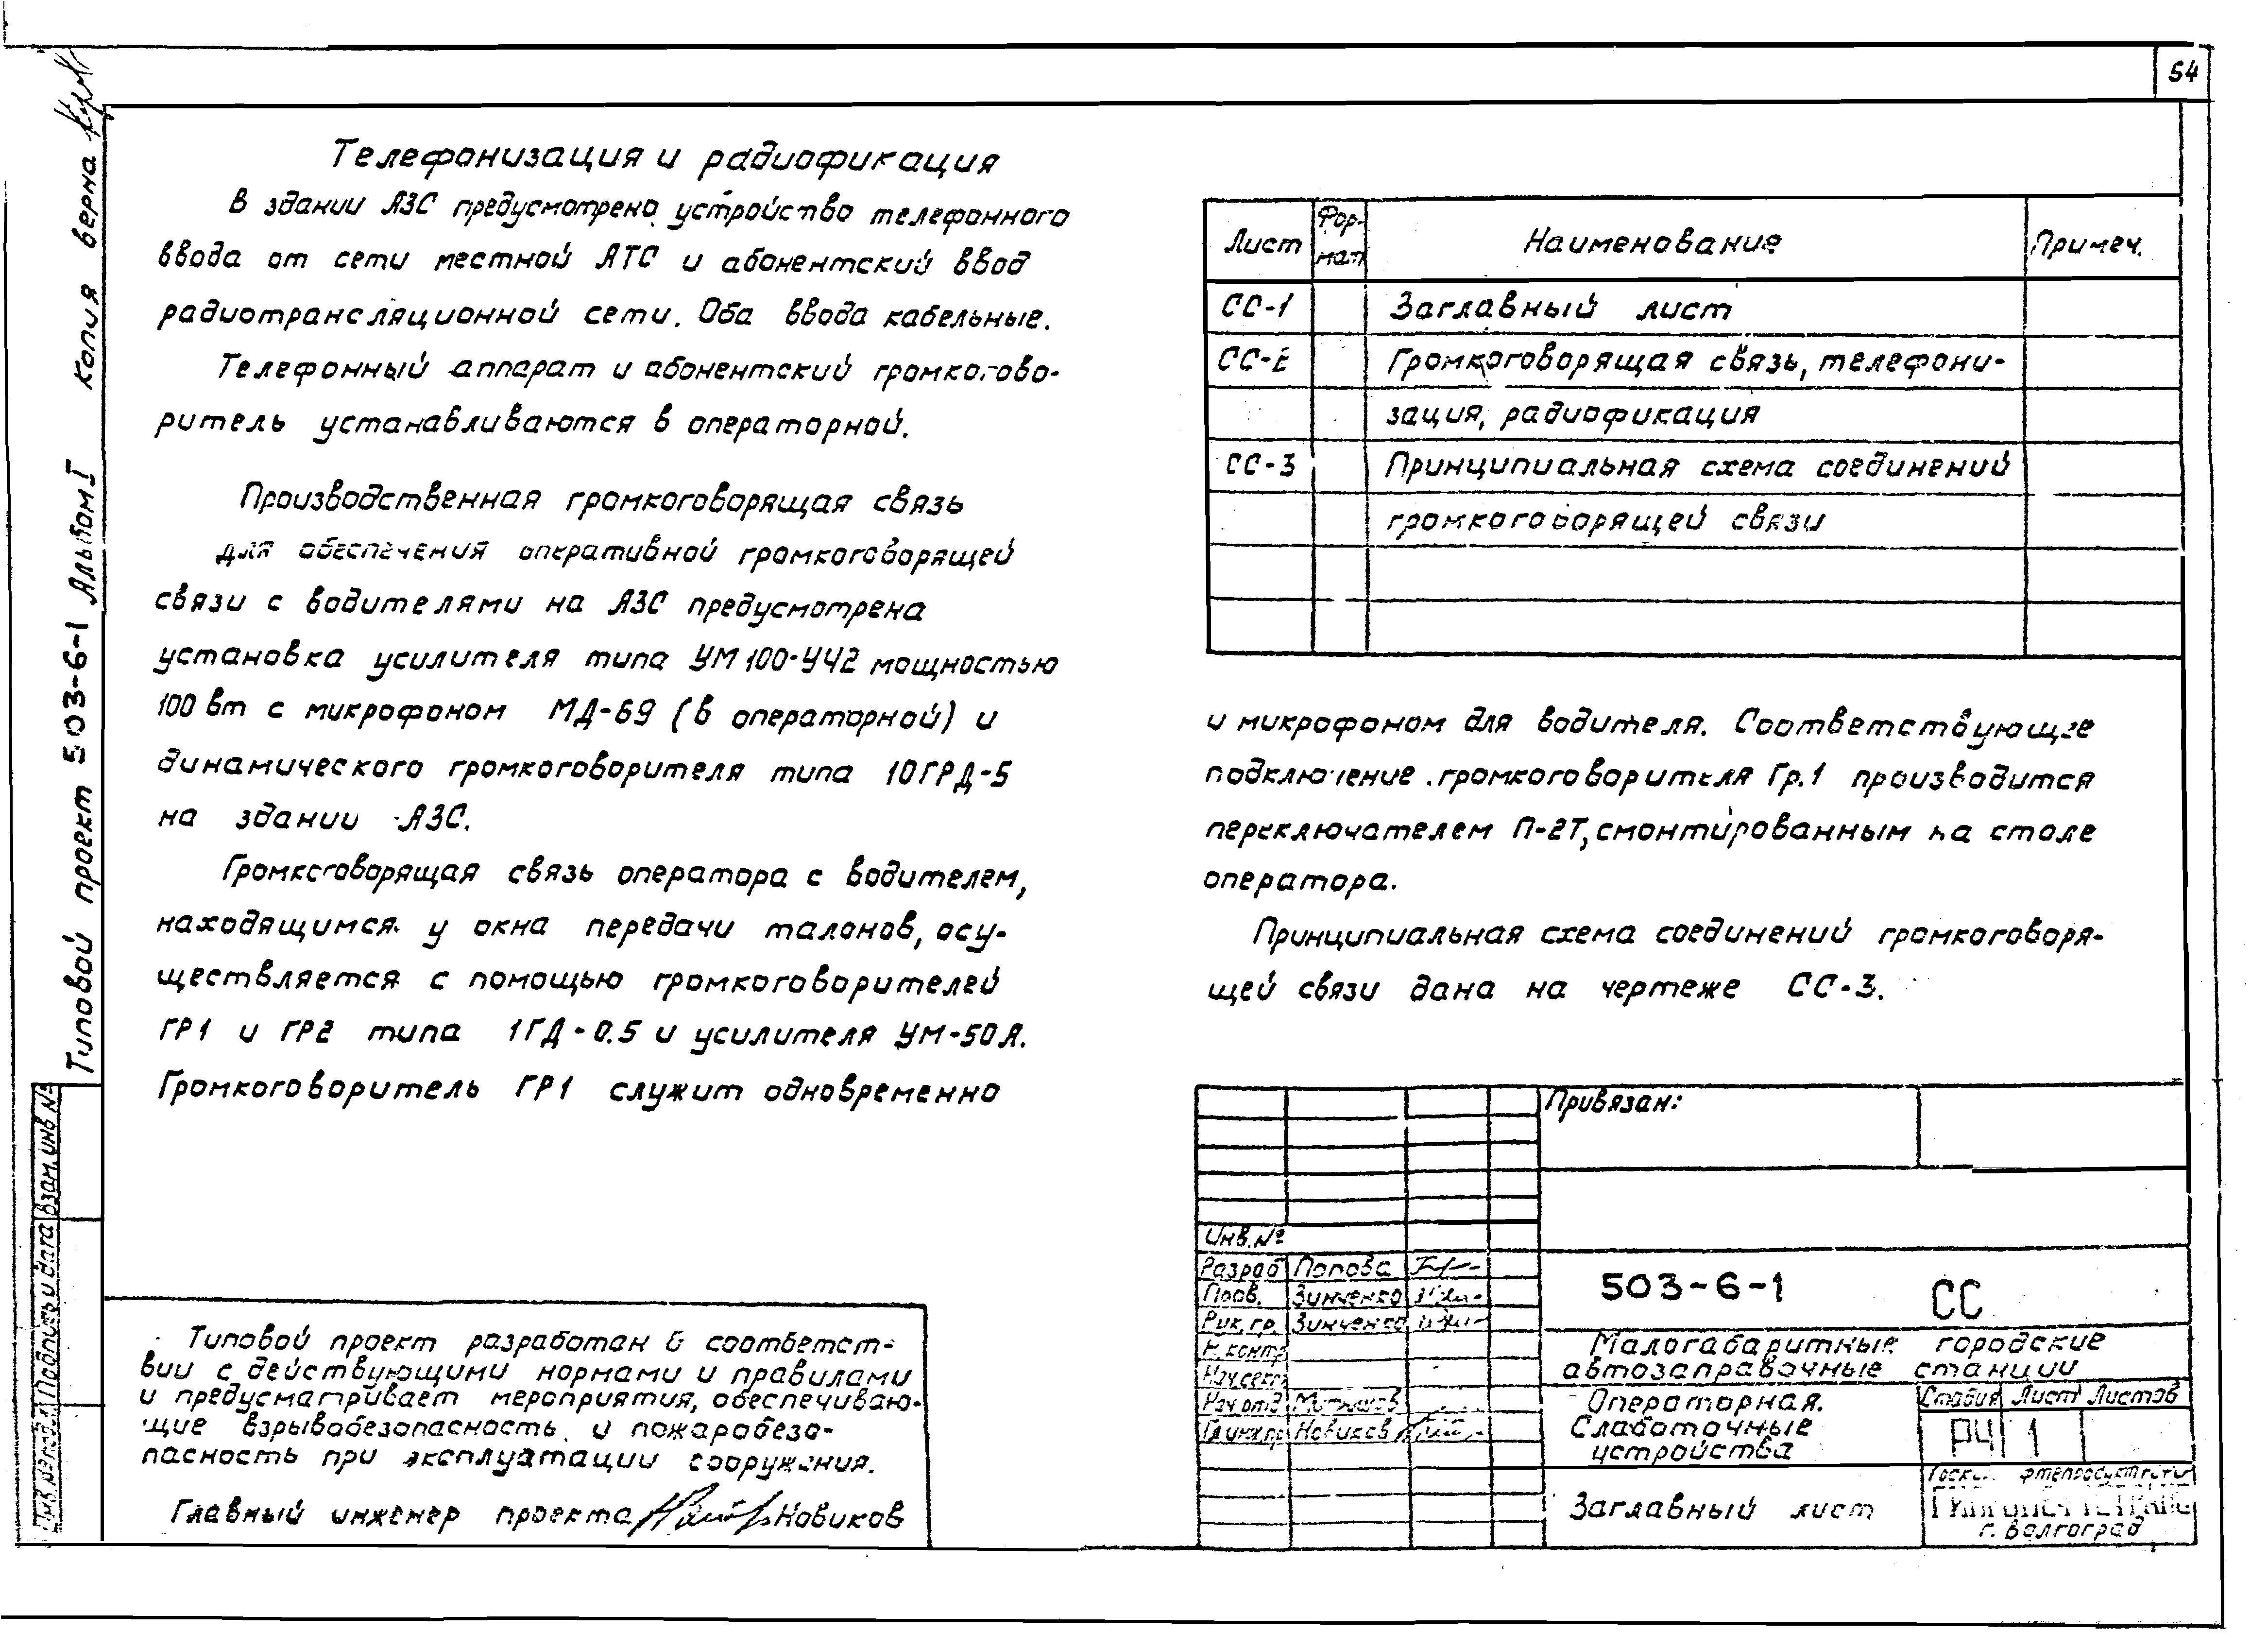 54
Копия верна
Типовой проект 503-6-1 Альбом I
Телефонизация и радиофикация
В здании АЗС предусмотрено устройство телефонного
ввода от сети местной АТС и абонентский ввод
радиотрансляционной сети. Оба ввода кабельные.
Телефонный аппарат и абонентский громкогово-
ритель устанавливаются в операторной.
Производственная громкоговорящая связь
Для обеспечения оперативной громкоговорящей
связи с водителями на АЗС предусмотрена
установка усилителя типа УМ100-УЧ2 мощностью
100 вт с микрофоном МД-69 (в операторной) и
динамического громкоговорителя типа 10ГРД-5
на здании АЗС.
Громкоговорящая связь оператора с водителем,
находящимся у окна передачи талонов, осу-
ществляется с помощью громкоговорителей
ГР1 и ГР2 типа 1ГД-0.5 и усилителя УМ-50А.
Громкоговоритель ГР1 служит одновременно
Лист Фор-мат Наименование Примеч.
СС-1 Заглавный лист
СС-2 Громкоговорящая связь, телефони-
зация, радиофикация
СС-3 Принципиальная схема соединений
громкоговорящей связи
и микрофоном для водителя. Соответствующее
подключение громкоговорителя Гр.1 производится
переключателем П-2Т, смонтированным на столе
оператора.
Принципиальная схема соединений громкоговоря-
щей связи дана на чертеже СС-3.
Взам. инв №
Подпись и дата
Инв. № подл.
Типовой проект разработан в соответст-
вии с действующими нормами и правилами
и предусматривает мероприятия, обеспечиваю-
щие взрывобезопасность и пожаробезо-
пасность при эксплуатации сооружения.
Главный инженер проекта Новиков
Привязан:
Инв. №
Разраб Попова
Пров. Зинченко
Рук. гр. Зинченко
Н. контр
Нач. сект
Нач. отд
Гл. инж. пр Новиков
503-6-1 СС
Малогабаритные городские
автозаправочные станции
Операторная.
Слаботочные
устройства
Стадия Лист Листов
РЧ 1
Заглавный лист
г. Волгоград